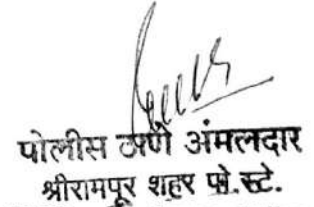 पोलीस ठाणे अंमलदार
श्रीरामपूर शहर पो.स्टे.